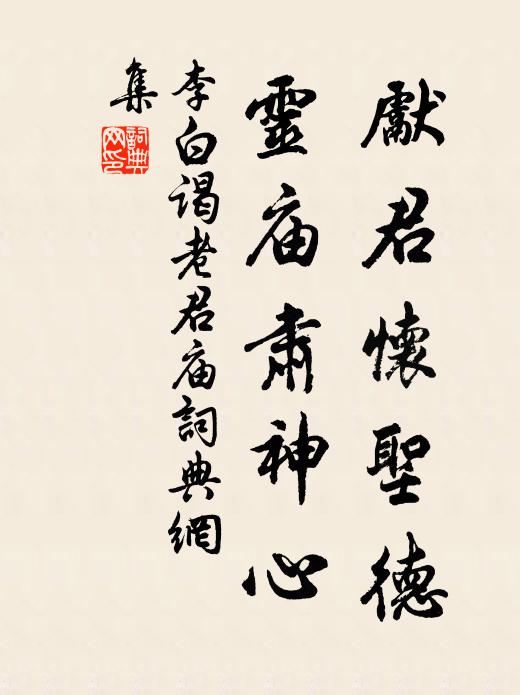 獻君懷聖德
靈庙肅神心
李白謁老君庙詞典網
集
詞典網印